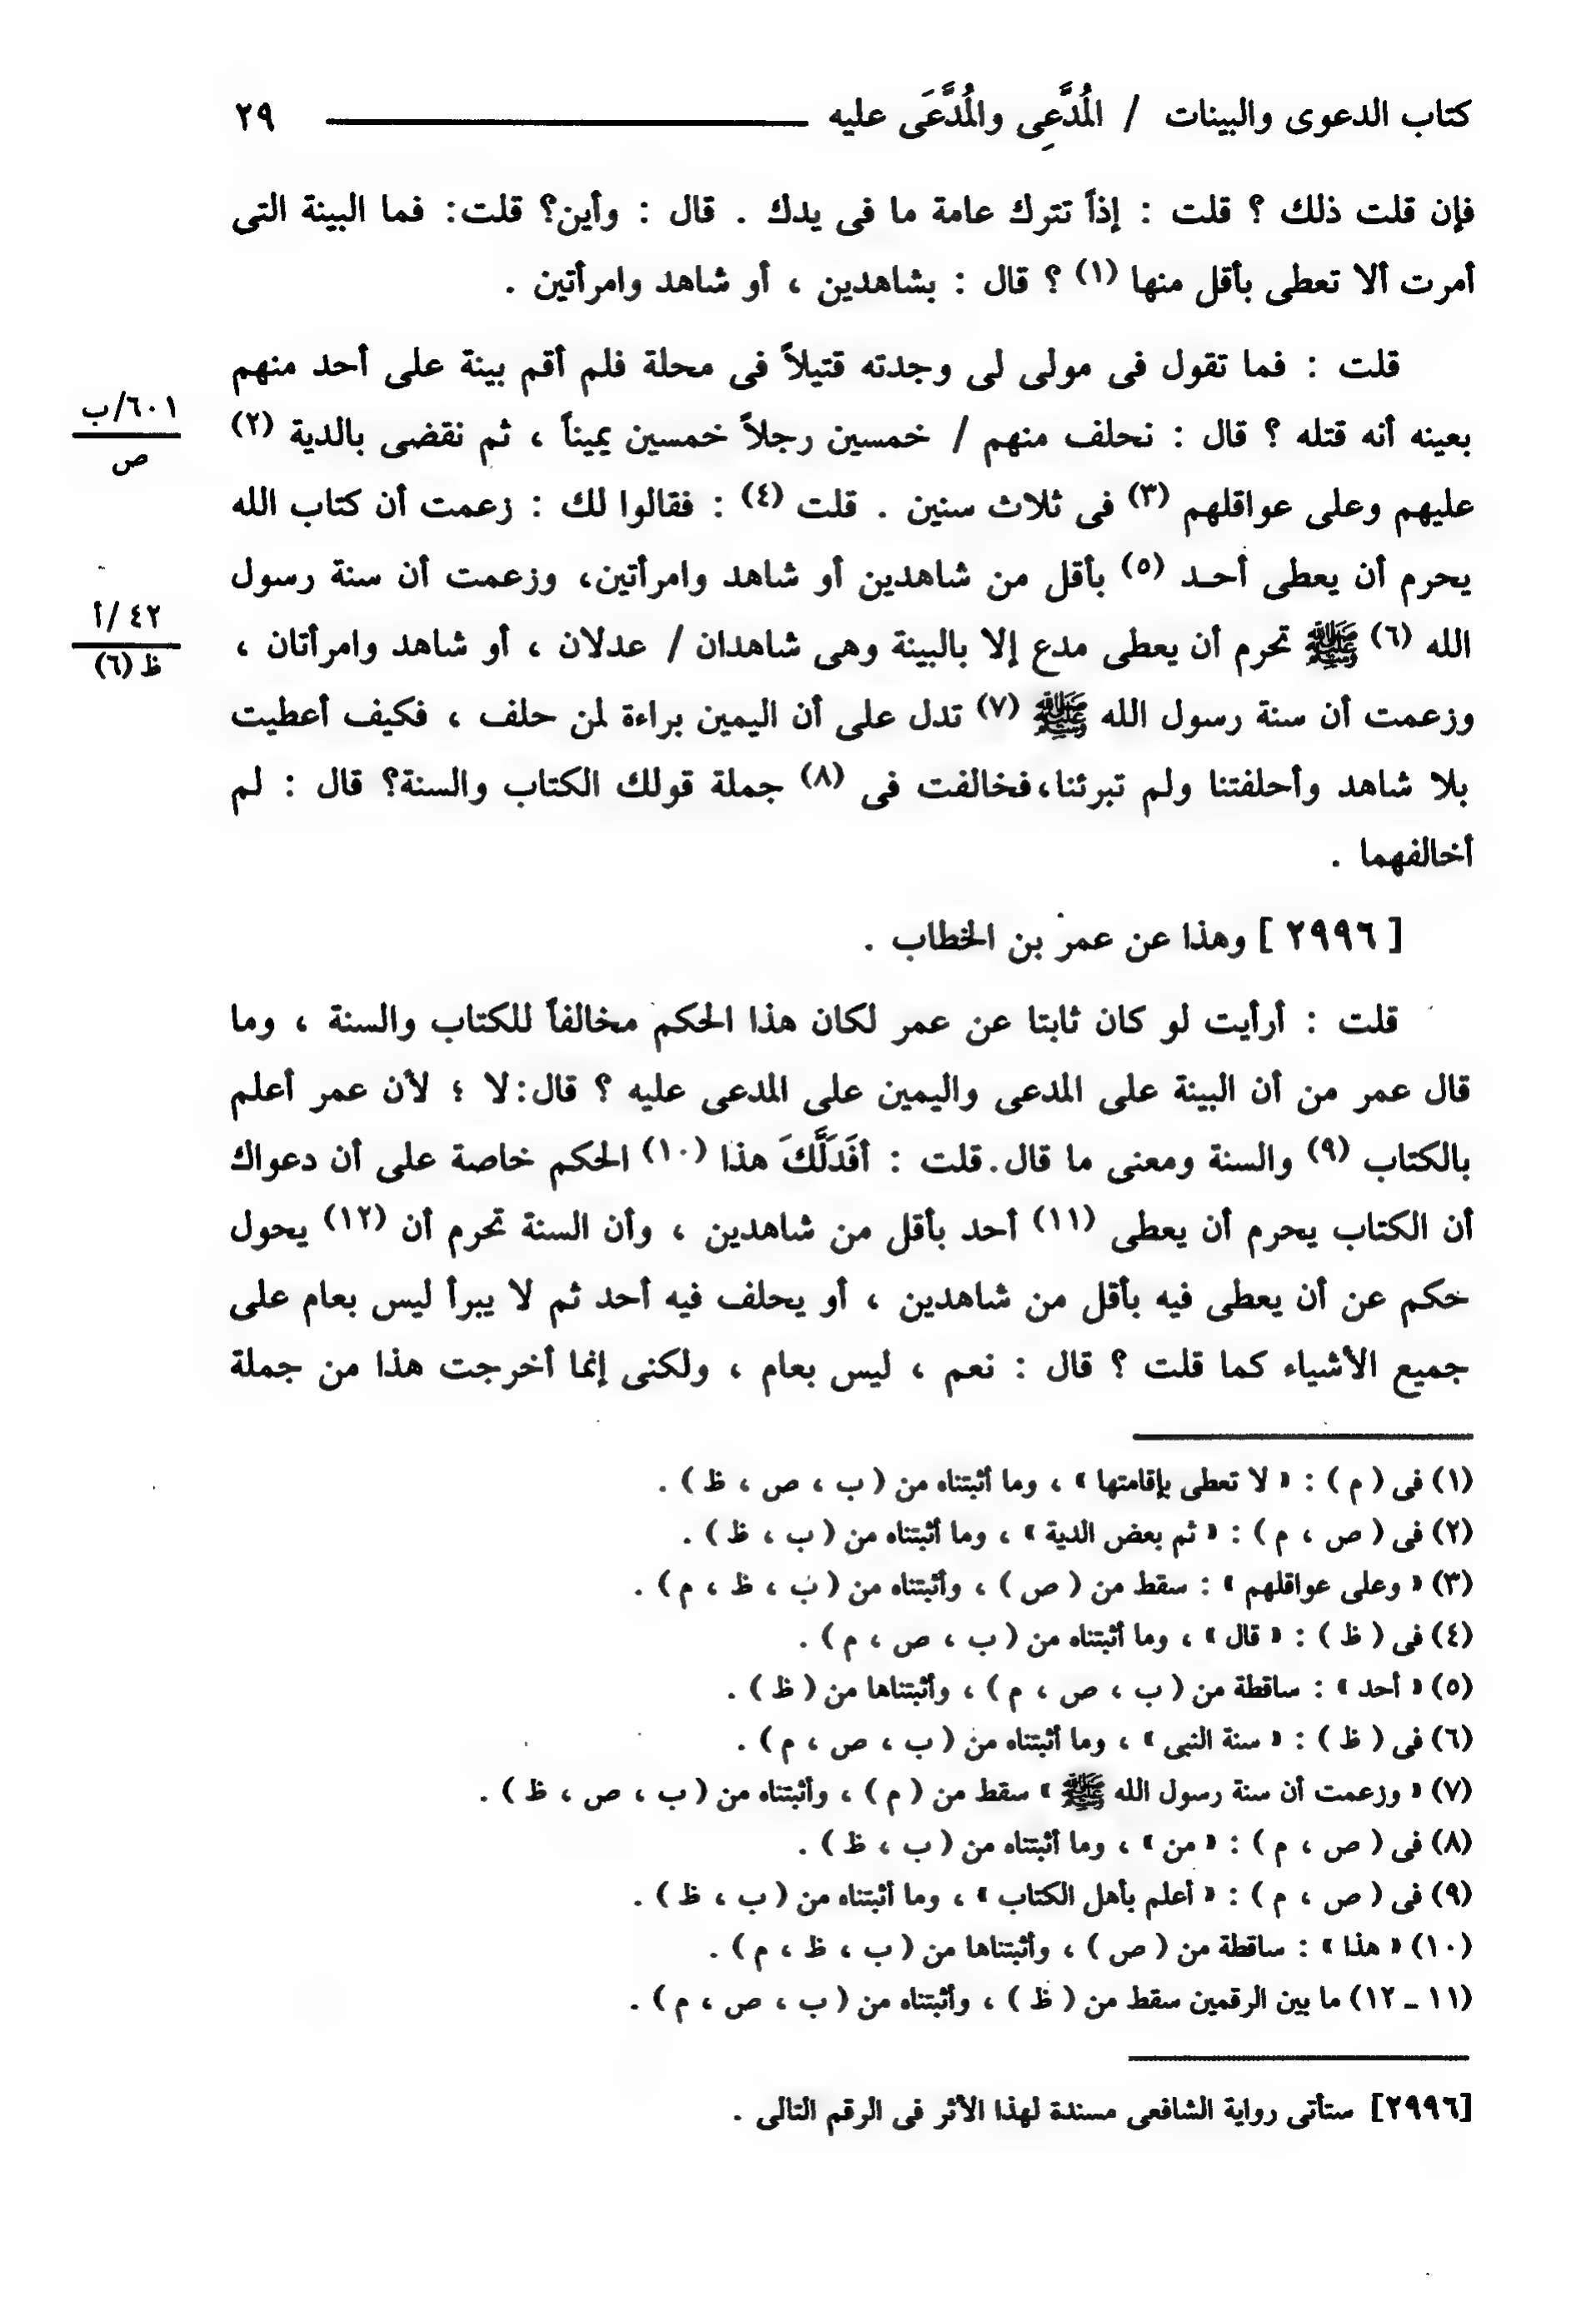 كتاب الدعوى والبينات / المُدَّعِى والمُدَّعَى عليه ٢٩
فإن قلت ذلك ؟ قلت : إذاً تترك عامة ما فى يدك . قال : وأين؟ قلت: فما البينة التى
أمرت ألا تعطى بأقل منها (١) ؟ قال : بشاهدين ، أو شاهد وامرأتين .
قلت : فما تقول فى مولى لى وجدته قتيلاً فى محلة فلم أقم بينة على أحد منهم
بعينه أنه قتله ؟ قال : نحلف منهم / خمسين رجلاً خمسين يميناً ، ثم نقضى بالدية (٢)
٦٠١/ب
ص
عليهم وعلى عواقلهم (٣) فى ثلاث سنين . قلت (٤) : فقالوا لك : زعمت أن كتاب الله
يحرم أن يعطى أحـد (٥) بأقل من شاهدين أو شاهد وامرأتين، وزعمت أن سنة رسول
الله (٦) ﷺ تحرم أن يعطى مدع إلا بالبينة وهى شاهدان / عدلان ، أو شاهد وامرأتان ،
٤٢ /أ
ظ (٦)
وزعمت أن سنة رسول الله ﷺ (٧) تدل على أن اليمين براءة لمن حلف ، فكيف أعطيت
بلا شاهد وأحلفتنا ولم تبرئنا،فخالفت فى (٨) جملة قولك الكتاب والسنة؟ قال : لم
أخالفهما .
[ ٢٩٩٦ ] وهذا عن عمر بن الخطاب .
قلت : أرأيت لو كان ثابتا عن عمر لكان هذا الحكم مخالفاً للكتاب والسنة ، وما
قال عمر من أن البينة على المدعى واليمين على المدعى عليه ؟ قال:لا ؛ لأن عمر أعلم
بالكتاب (٩) والسنة ومعنى ما قال.قلت : أفَدَلَّكَ هذا (١٠) الحكم خاصة على أن دعواك
أن الكتاب يحرم أن يعطى (١١) أحد بأقل من شاهدين ، وأن السنة تحرم أن (١٢) يحول
حكم عن أن يعطى فيه بأقل من شاهدين ، أو يحلف فيه أحد ثم لا يبرأ ليس بعام على
جميع الأشياء كما قلت ؟ قال : نعم ، ليس بعام ، ولكنى إنما أخرجت هذا من جملة
(١) فى ( م ) : « لا تعطى بإقامتها » ، وما أثبتناه من ( ب ، ص ، ظ ) .
(٢) فى ( ص ، م ) : « ثم بعض الدية » ، وما أثبتناه من ( ب ، ظ ) .
(٣) « وعلى عواقلهم » : سقط من ( ص ) ، وأثبتناه من ( ب ، ظ ، م ) .
(٤) فى ( ظ ) : « قال » ، وما أثبتناه من ( ب ، ص ، م ) .
(٥) « أحد » : ساقطة من ( ب ، ص ، م ) ، وأثبتناها من ( ظ ) .
(٦) فى ( ظ ) : « سنة النبى » ، وما أثبتناه من ( ب ، ص ، م ) .
(٧) « وزعمت أن سنة رسول الله ﷺ » سقط من ( م ) ، وأثبتناه من ( ب ، ص ، ظ ) .
(٨) فى ( ص ، م ) : « من » ، وما أثبتناه من ( ب ، ظ ) .
(٩) فى ( ص ، م ) : « أعلم بأهل الكتاب » ، وما أثبتناه من ( ب ، ظ ) .
(١٠) « هذا » : ساقطة من ( ص ) ، وأثبتناها من ( ب ، ظ ، م ) .
(١١ ـ ١٢) ما بين الرقمين سقط من ( ظ ) ، وأثبتناه من ( ب ، ص ، م ) .
[٢٩٩٦] ستأتى رواية الشافعى مسندة لهذا الأثر فى الرقم التالى .